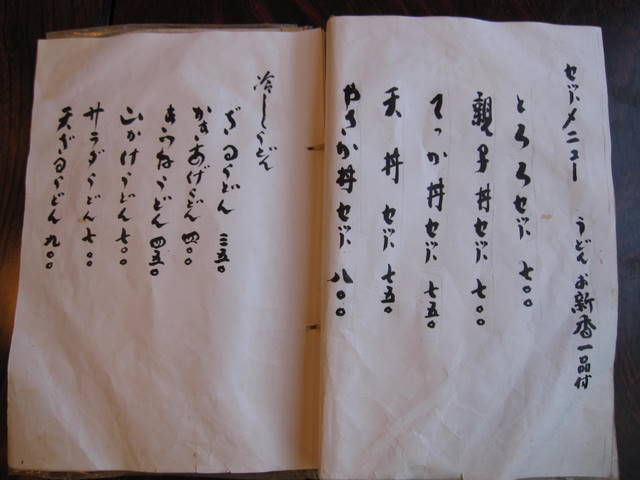 セットメニュー うどん お新香一品付
とろろセット 七〇〇
親子丼セット 七〇〇
てっか丼セット 七五〇
天丼セット 七五〇
やさか丼セット 八〇〇
冷しうどん
ざるうどん 三五〇
かきあげうどん 四〇〇
きつねうどん 四五〇
山かけうどん 七〇〇
サラダうどん 七〇〇
天ざるうどん 九〇〇